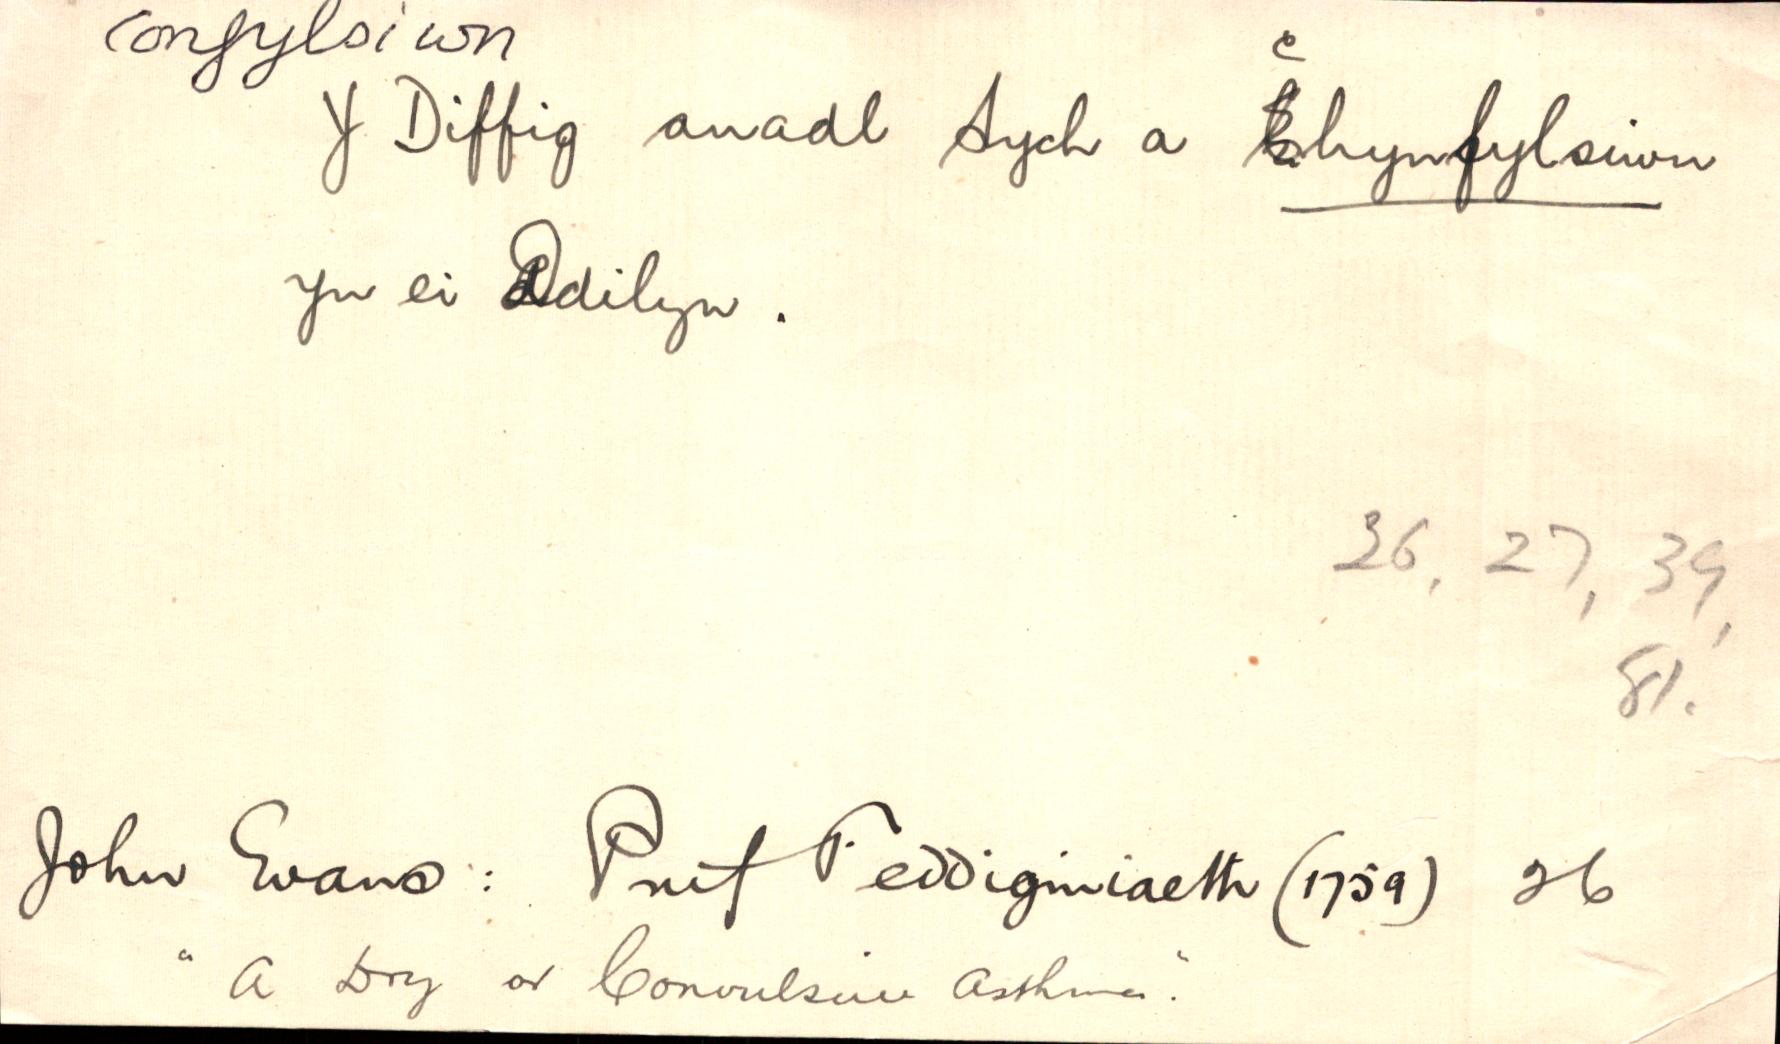 confylsiwn
Y Diffig anadl Sych a chynfylsiwn
yn ei Ddilyn.
26, 27, 39,
81.
John Evans: Prif Feddiginiaeth (1759) 26
"A Dry or Convulsive Asthma".